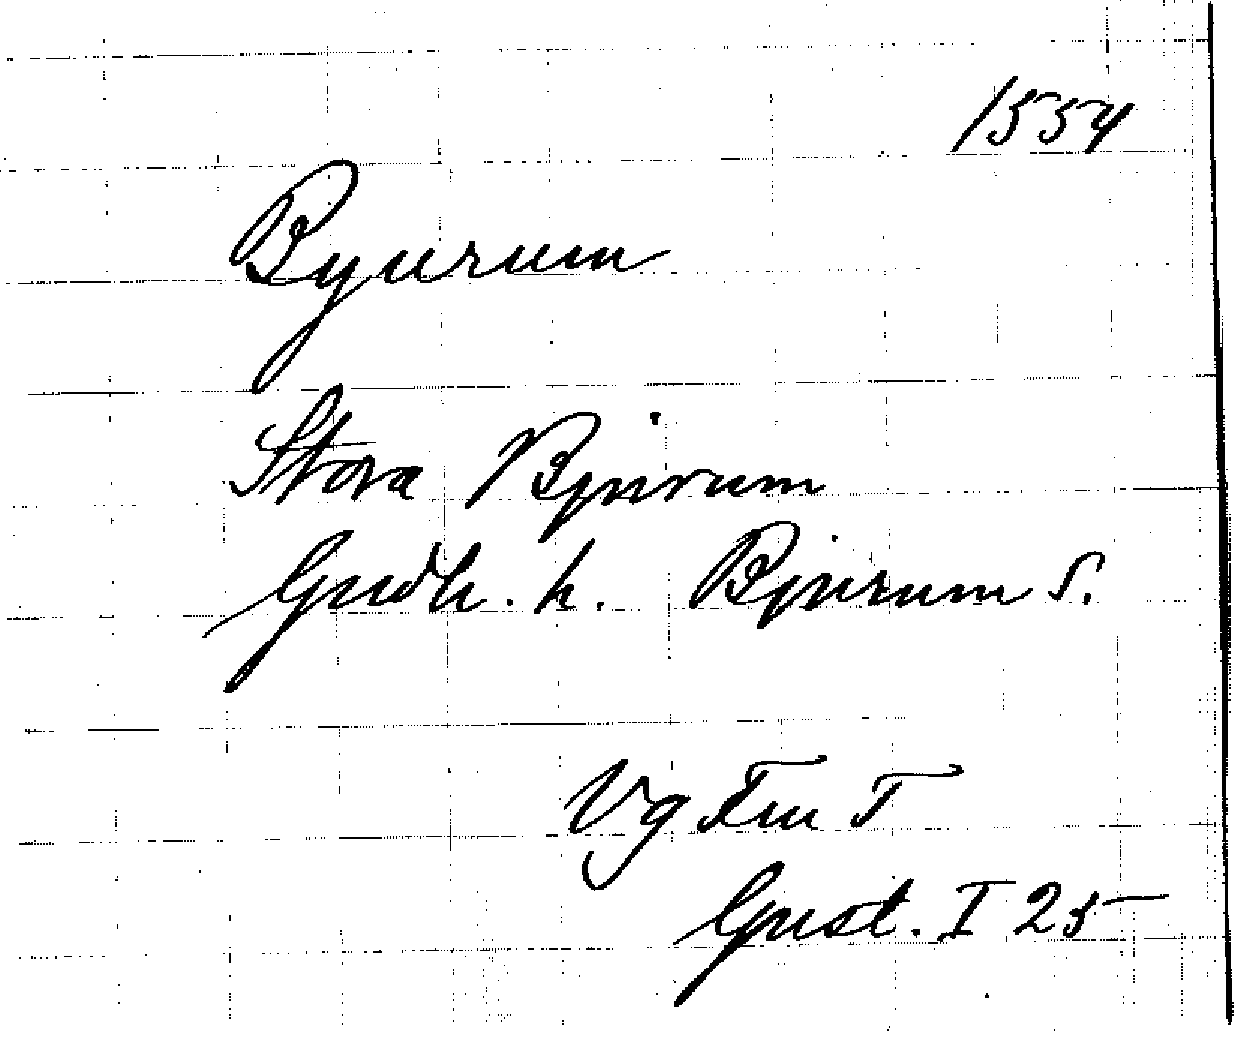 1554
Byurum
Stora Bjurum
Gudh. h. Bjurum s.
Vg Fru T
Gust. I 25